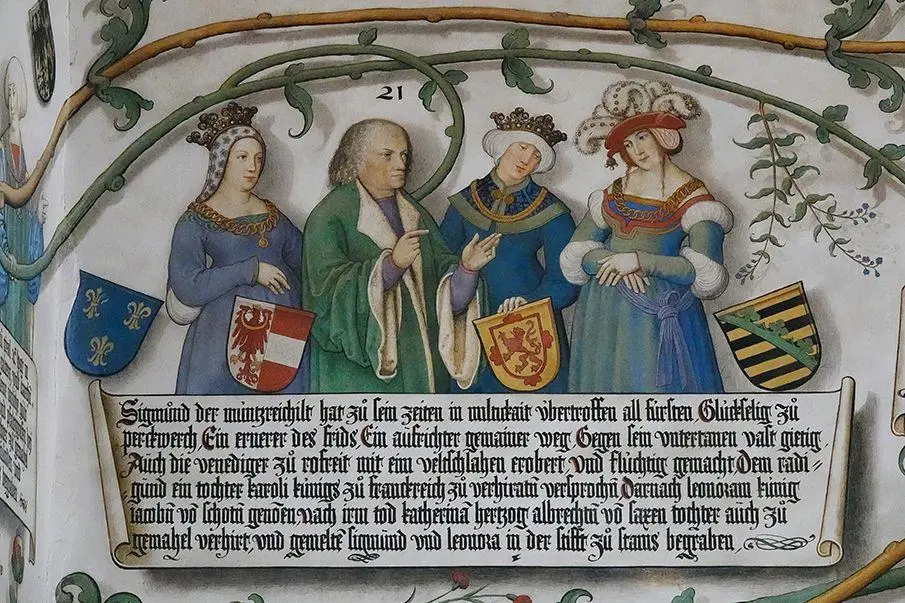 21
Sigmund der müntzreichist hat zů sein zeiten in miltikait vbertroffen all fürsten Glückselig zů
perckwerch Ein ernerer des frids Ein aufrichter gemainer weg Gegen sein vntertanen vast gietig
Auch die venediger zů rofreit mit eim veltschlahen erobert vnd fluchtig gemacht Dem radi⸗
gund ein tochter karoli künigs zů franckreich zů verhiratn̄ versprochn̄ Darnach leonoram künig
iacobn̄ vō schotn̄ genōen nach irm tod katherinā hertzog albrechtn̄ vō saxen tochter auch zů
gemahel verhirt vnd gemelte sigmund vnd leonora in der stifft zů stams begraben